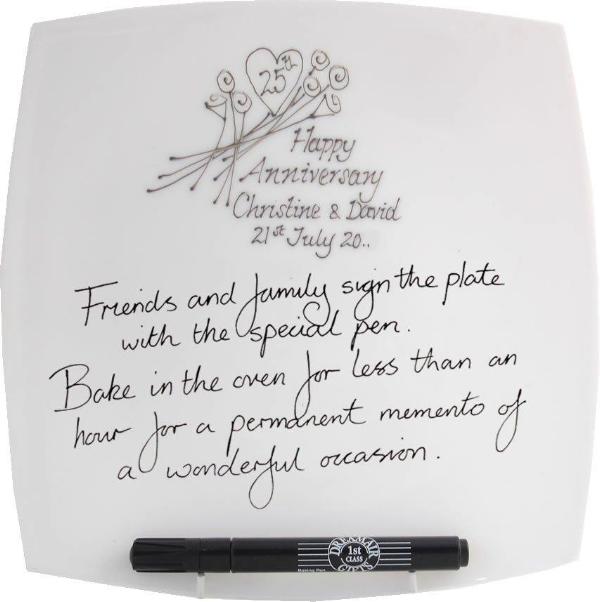 25th
Happy
Anniversary
Christine & David
21st July 20..
Friends and family sign the plate
with the special pen.
Bake in the oven for less than an
hour for a permanent memento of
a wonderful occasion.
DREAMAIR
1st
CLASS
GIFTS